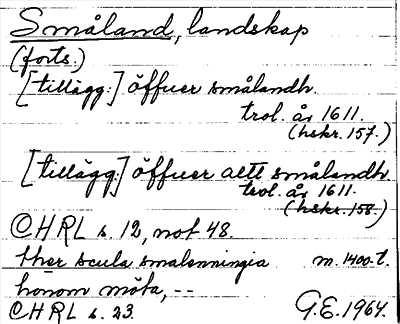 Småland, landskap
(forts.)
[tillägg:] öffuer smålandh.
trol. år 1611.
(hskr. 157.)
[tillägg:] öffuer altt smålandh
trol. år 1611.
(hskr. 158.)
CHRL s. 12, not 48.
ther scula smalenningia m. 1400-t.
honom möta, --
CHRL s. 23. G.E. 1964.